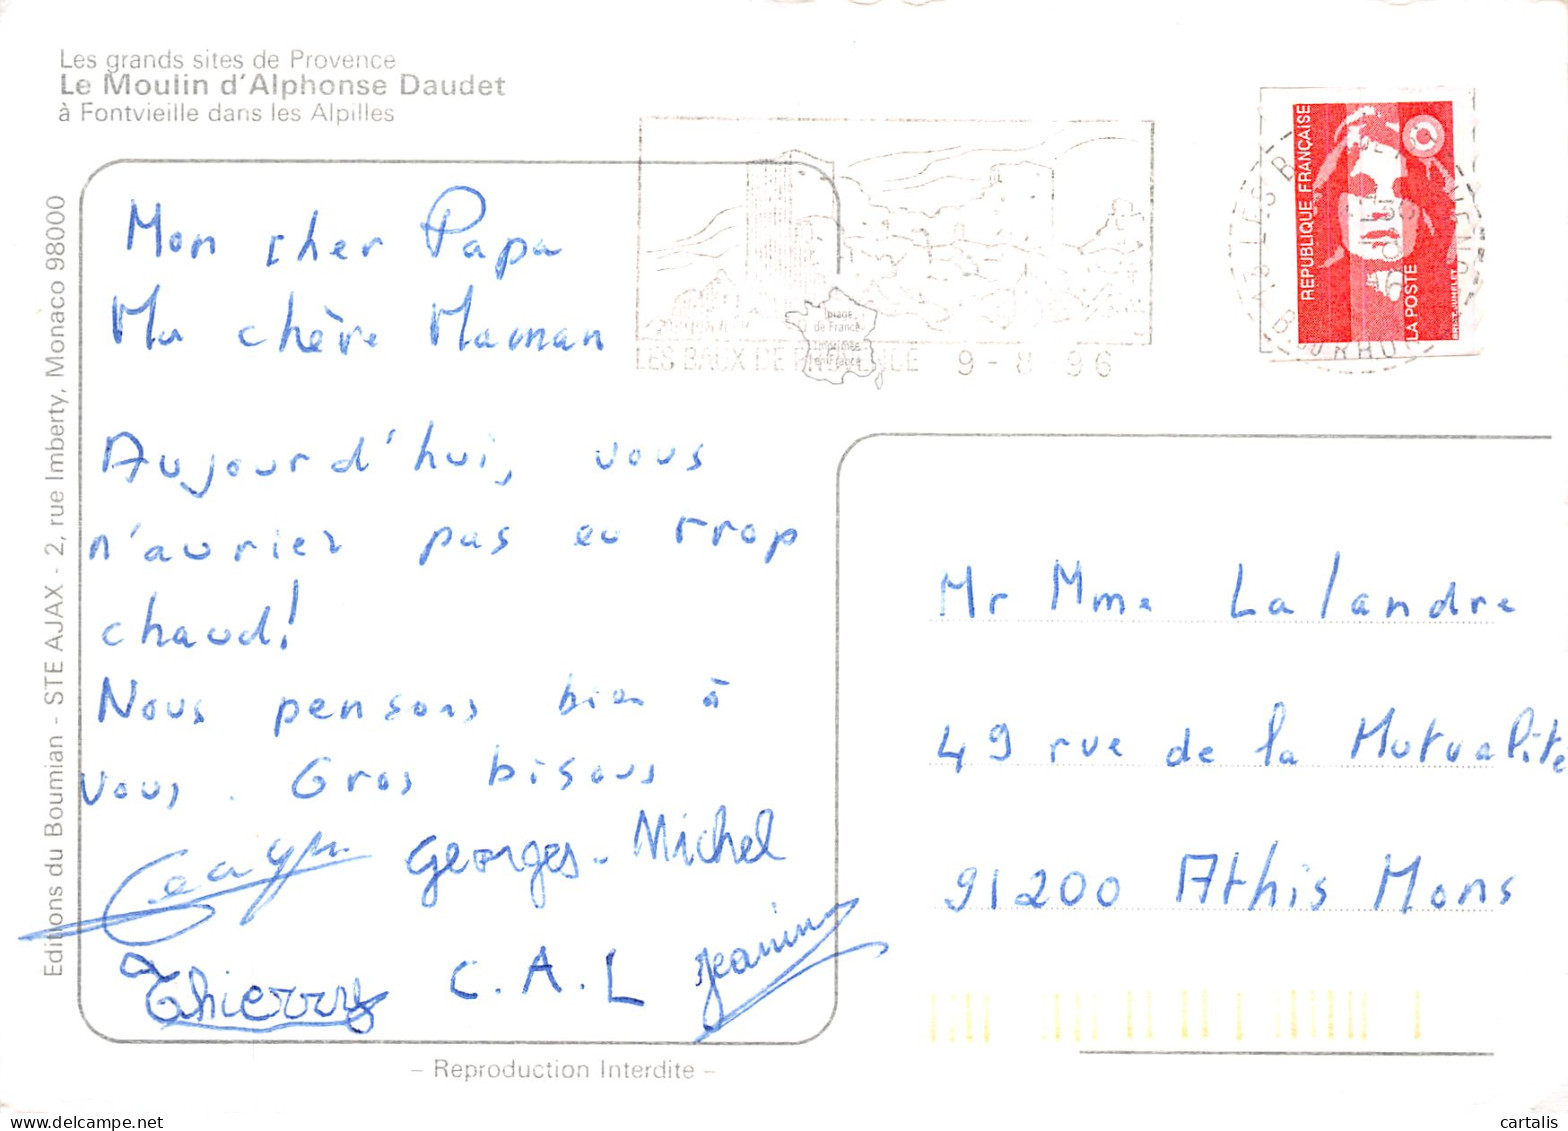 Les grands sites de Provence
Le Moulin d'Alphonse Daudet
à Fontvieille dans les Alpilles
Editions du Boumian - STE AJAX - 2, rue Imberty, Monaco 98000
Mon cher Papa
Ma chère Maman
Aujourd'hui, vous
n'auriez pas eu trop
chaud!
Nous pensons bien à
vous. Gros bisous
Georges-Michel
Thierry C.A.L Jeanine
LES BAUX DE PROVENCE 9-8 96
de France
en France
REPUBLIQUE FRANÇAISE
LA POSTE
Mr Mme Lalandre
49 rue de la Mutualite
91200 Athis Mons
- Reproduction Interdite -
cartalis